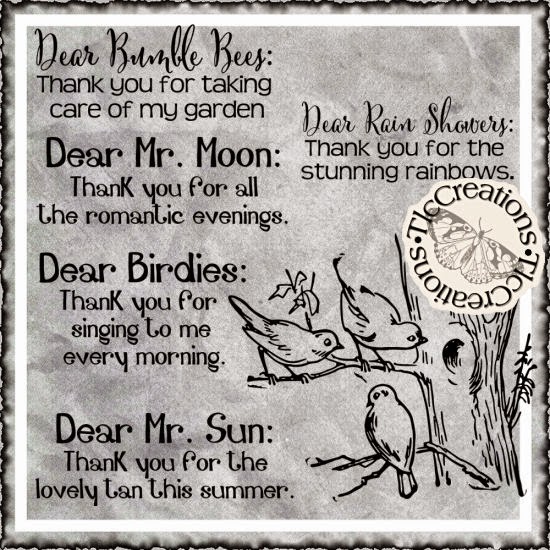 Dear Bumble Bees:
Thank you for taking
care of my garden
Dear Rain Showers:
Thank you for the
stunning rainbows.
Dear Mr. Moon:
Thank you for all
the romantic evenings.
•TlcCreations•TlcCreations
Dear Birdies:
Thank you for
singing to me
every morning.
Dear Mr. Sun:
Thank you for the
lovely tan this summer.